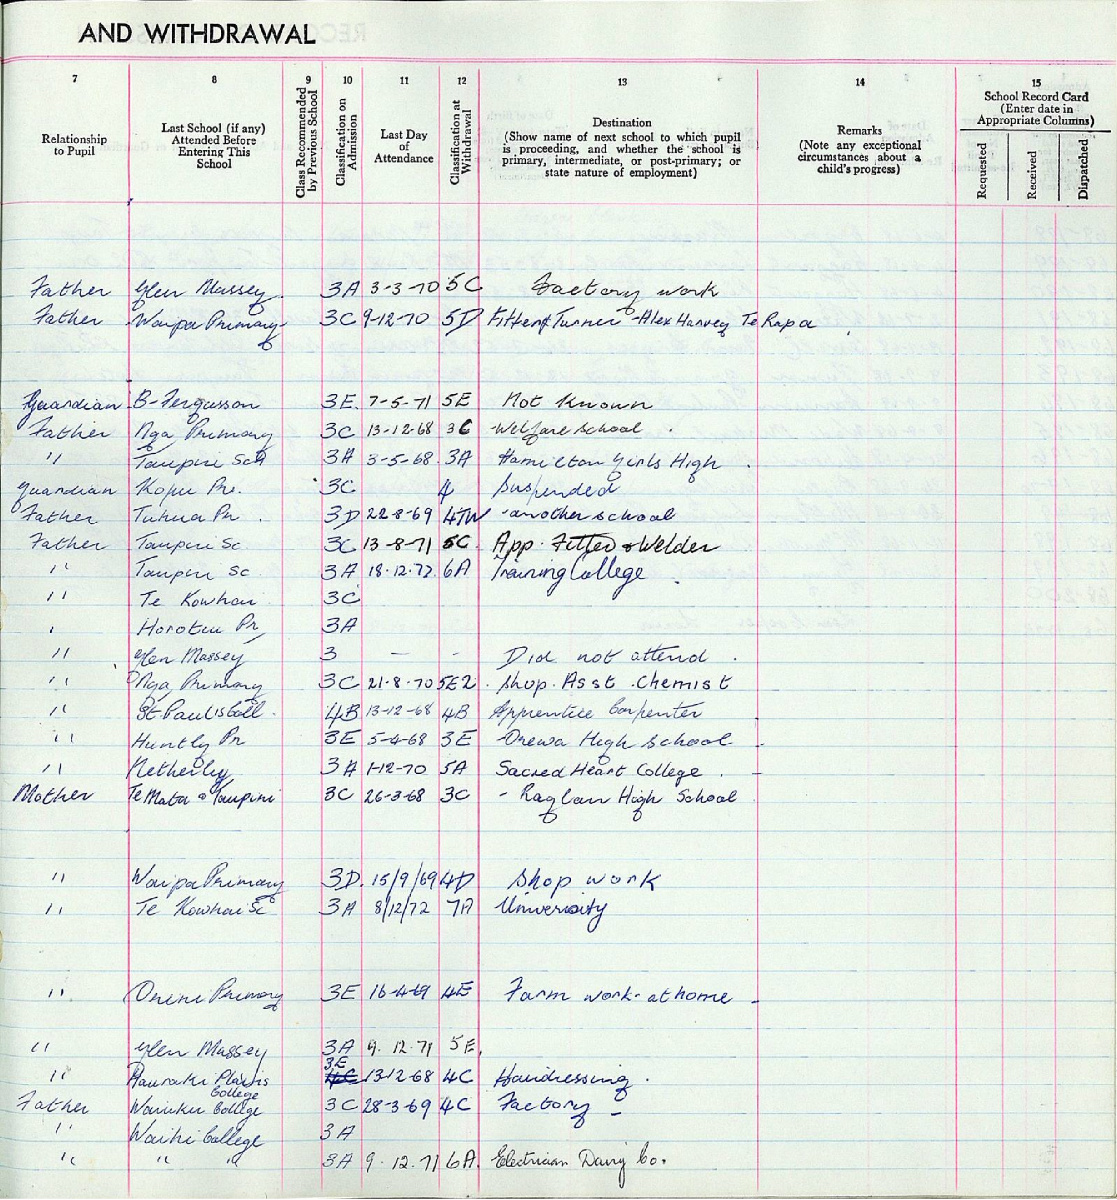 AND WITHDRAWAL
7 8 9 10 11 12 13 14 15
Relationship to Pupil
Last School (if any) Attended Before Entering This School
Class Recommended by Previous School
Classification on Admission
Last Day of Attendance
Classification at Withdrawal
Destination
(Show name of next school to which pupil is proceeding, and whether the school is primary, intermediate, or post-primary; or state nature of employment)
Remarks
(Note any exceptional circumstances about a child's progress)
School Record Card
(Enter date in Appropriate Columns)
Requested
Received
Dispatched
Father Glen Massey. 3A 3-3-70 5C Factory work
Father Waipa Primary 3C 9-12-70 5D Fitter & Turner - Alex Harvey Te Rapa
Guardian B-Fergusson 3E 7-5-71 5E Not Known
Father Nga Primary 3C 13-12-68 3C -Welfare school .
" Taupiri Sch 3A 3-5-68 3A Hamilton Girls High .
Guardian Kopu Pr. 3C 4 Suspended
Father Tuhua Pr . 3D 22-8-69 4TW -another school
Father Taupiri Sc 3C 13-8-71 5C App. Fitter & Welder
" Taupiri Sc. 3A 18.12.72 6A Training College .
" Te Kowhai 3C
" Horotiu Pr 3A
" Glen Massey 3 - - Did not attend .
" Nga Primary 3C 21-8-70 5E2 Shop. Asst. Chemist
" St. Pauls Coll. 4B 13-12-68 4B Apprentice Carpenter
" Huntly Pr 3E 5-4-68 3E -Orewa High School -
" Netherby 3A 1-12-70 5A Sacred Heart College . -
Mother Te Mata & Taupiri 3C 26-3-68 3C - Raglan High School
" Waipa Primary 3D. 15/9/69 4D Shop work
" Te Kowhai Sc 3A 8/12/72 7A University
" Onini Primary 3E 16-4-69 4E Farm work - at home -
" Glen Massey 3A 9. 12. 71 5E.
3E
" Hauraki Plains College 4C 13-12-68 4C Hairdressing .
Father Waiuku College 3C 28-3-69 4C Factory -
" Waihi College 3A
" " " 3A 9. 12. 71 6A. Electrician Dairy Co.